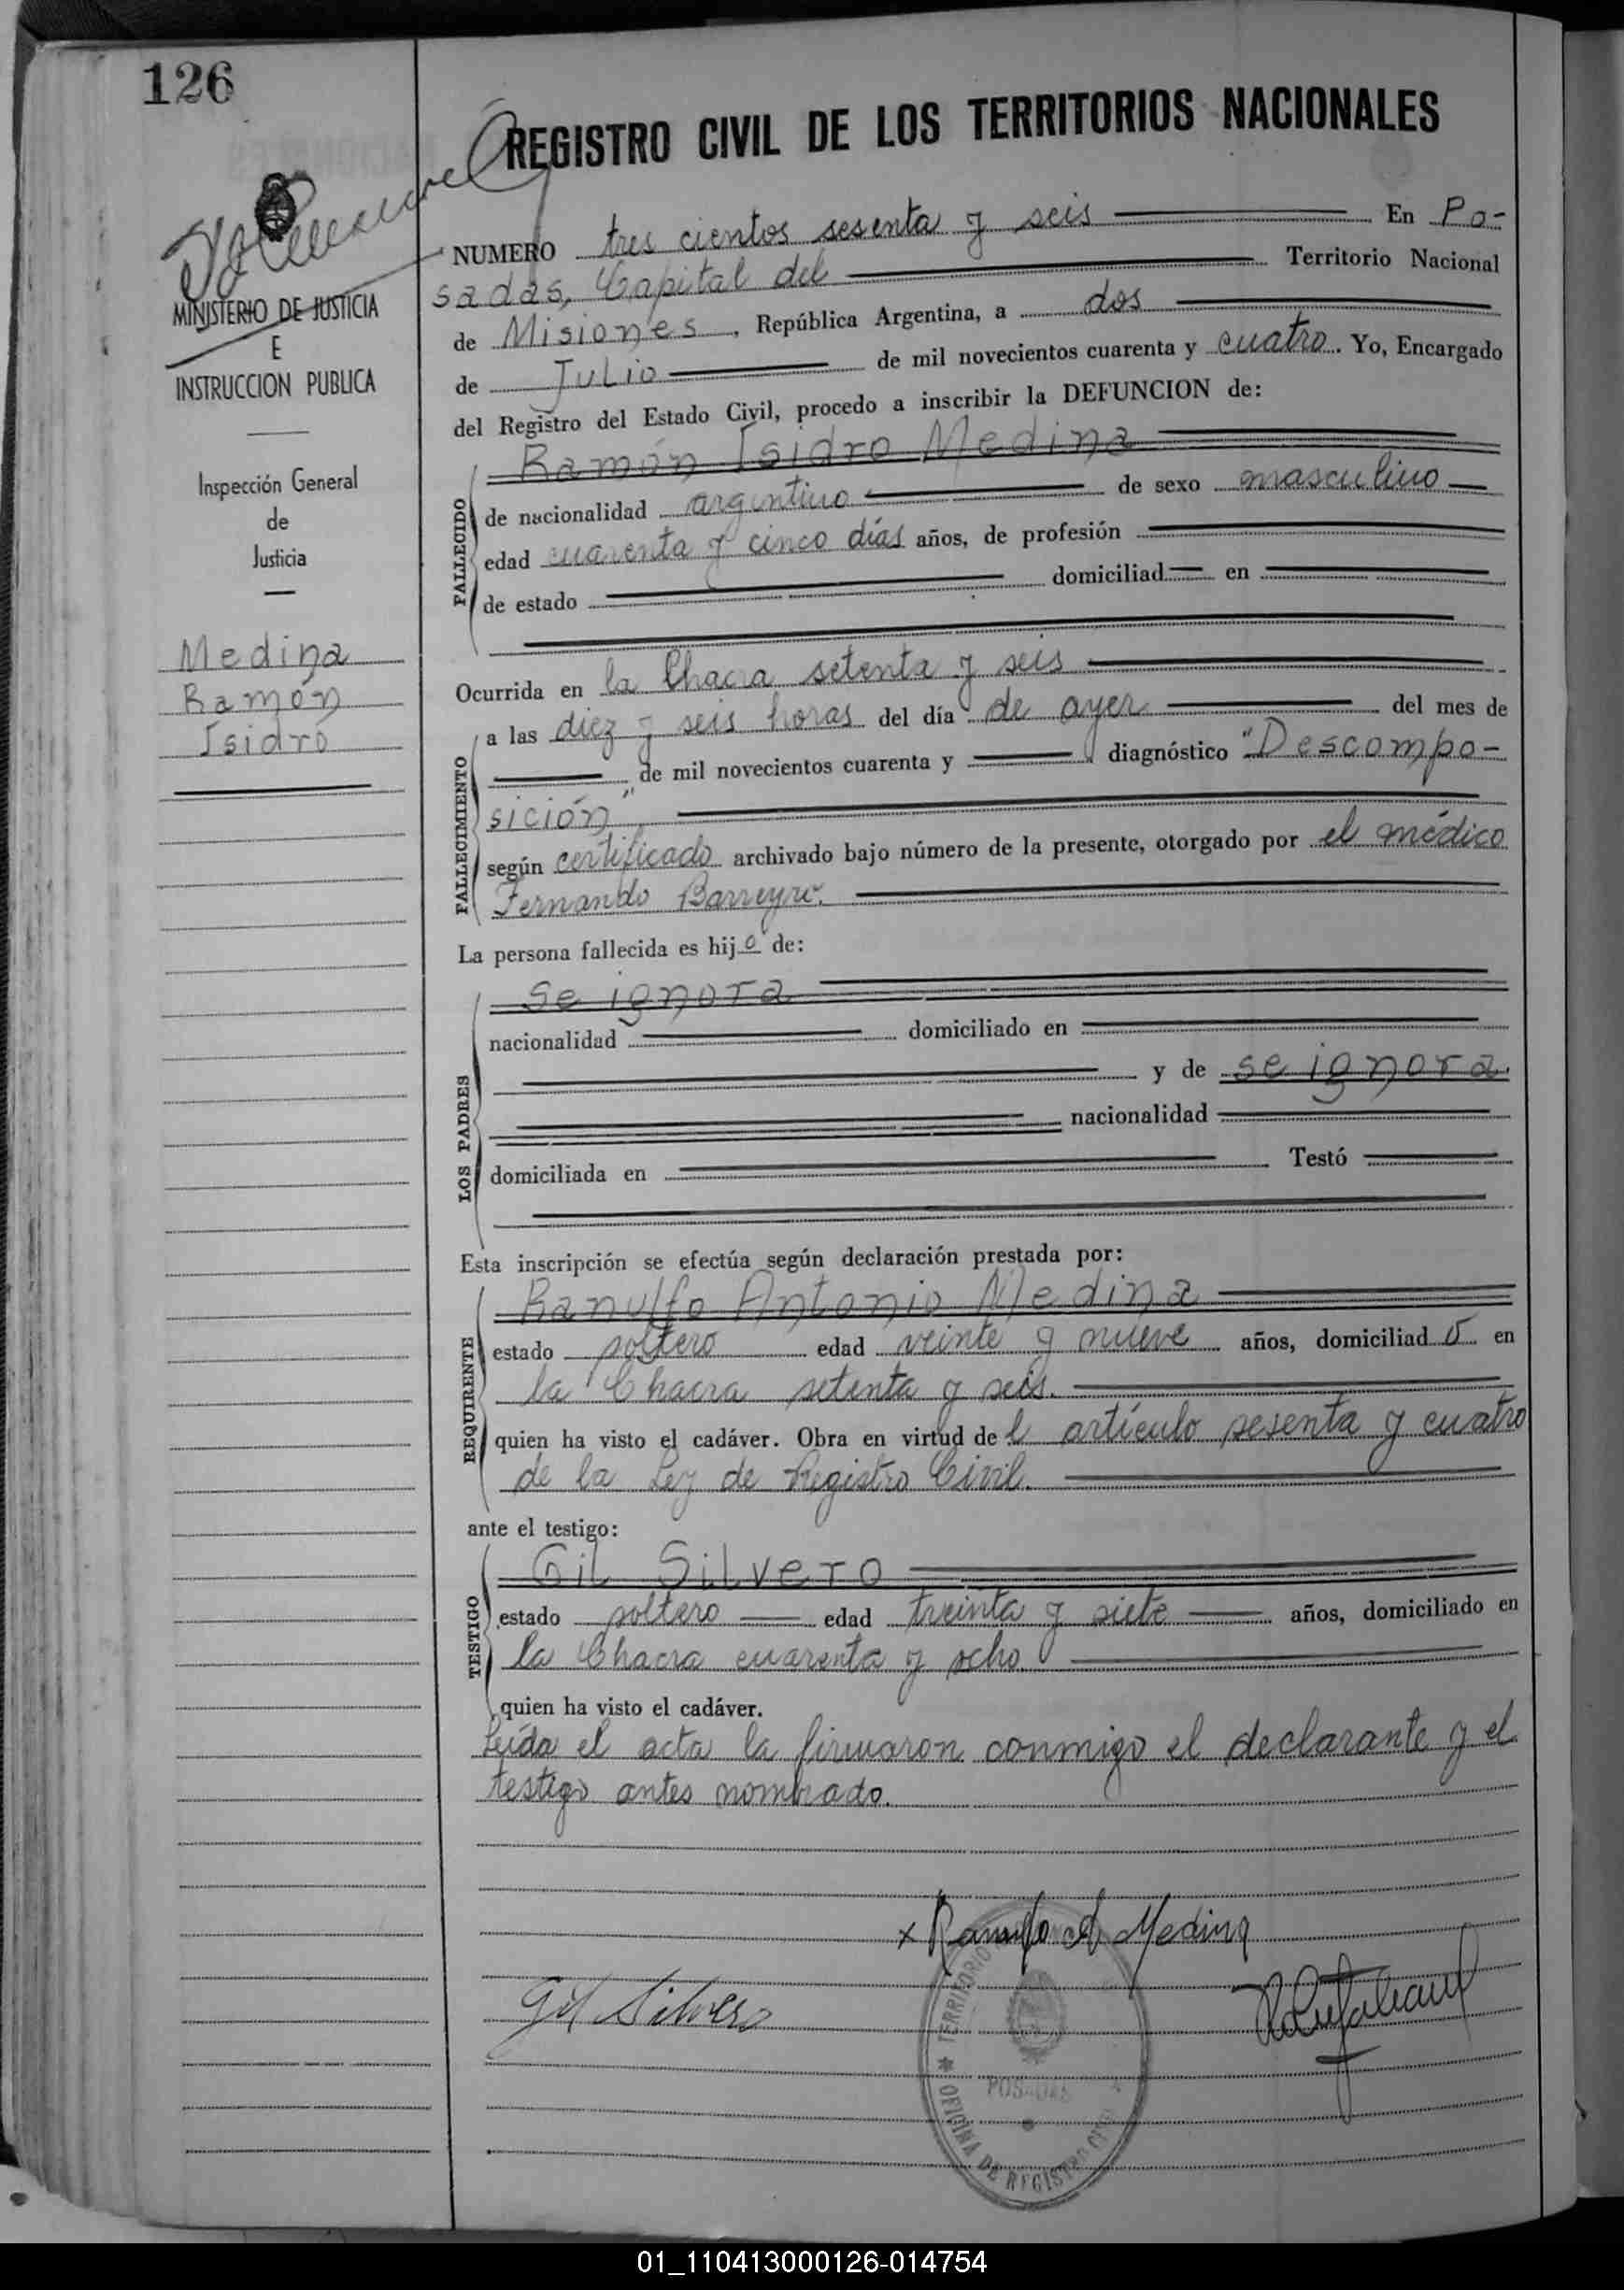 126
REGISTRO CIVIL DE LOS TERRITORIOS NACIONALES
MINISTERIO DE JUSTICIA
E
INSTRUCCION PUBLICA
Inspección General
de
Justicia
Medina
Ramón
Isidro
NUMERO tres cientos sesenta y seis En Po-
sadas, Capital del Territorio Nacional
de Misiones, República Argentina, a dos
de Julio de mil novecientos cuarenta y cuatro. Yo, Encargado
del Registro del Estado Civil, procedo a inscribir la DEFUNCION de:
FALLECIDO
Ramón Isidro Medina
de nacionalidad argentino de sexo masculino
edad cuarenta y cinco días años, de profesión
de estado domiciliad en
Ocurrida en la Chacra setenta y seis
FALLECIMIENTO
a las diez y seis horas del día de ayer del mes de
de mil novecientos cuarenta y diagnóstico "Descompo-
sición"
según certificado archivado bajo número de la presente, otorgado por el médico
Fernando Barreyro.
La persona fallecida es hijo de:
LOS PADRES
Se ignora
nacionalidad domiciliado en
y de se ignora.
nacionalidad
domiciliada en Testó
Esta inscripción se efectúa según declaración prestada por:
REQUIRENTE
Ranulfo Antonio Medina
estado soltero edad veinte y nueve años, domiciliado en
la Chacra setenta y seis.
quien ha visto el cadáver. Obra en virtud del artículo sesenta y cuatro
de la Ley de Registro Civil.
ante el testigo:
TESTIGO
Gil Silvero
estado soltero edad treinta y siete años, domiciliado en
la Chacra cuarenta y ocho.
quien ha visto el cadáver.
Leída el acta la firmaron conmigo el declarante y el
testigo antes nombrado.
x Ranulfo A Medina
Gil Silvero
TERRITORIO
POSADAS
OFICINA DE REGISTRO CIVIL
01_110413000126-014754